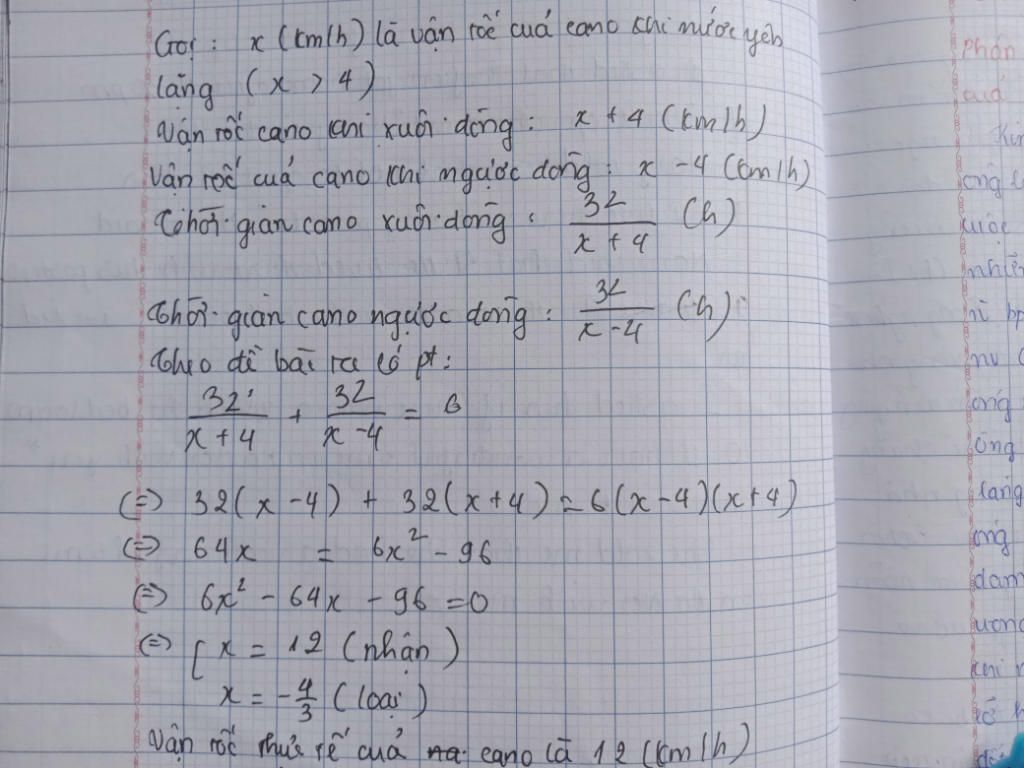 Gọi : x (km/h) là vận tốc cuả cano khi nước yên
lặng (x > 4)
Vận tốc cano khi xuôi dòng : x + 4 (km/h)
Vận tốc cuả cano khi ngược dòng : x - 4 (km/h)
Thời gian cano xuôi dòng : 32/(x + 4) (h)
Thời gian cano ngược dòng : 32/(x - 4) (h)
Theo đề bài ra có pt :
32/(x + 4) + 32/(x - 4) = 6
(=) 32(x - 4) + 32(x + 4) = 6(x - 4)(x + 4)
(=) 64x = 6x² - 96
(=) 6x² - 64x - 96 = 0
(=) [ x = 12 (nhận)
x = -4/3 (loại)
Vận tốc thực tế cuả cano là 12 (km/h)
phán
quả
ông
nhiên
ông
lặng